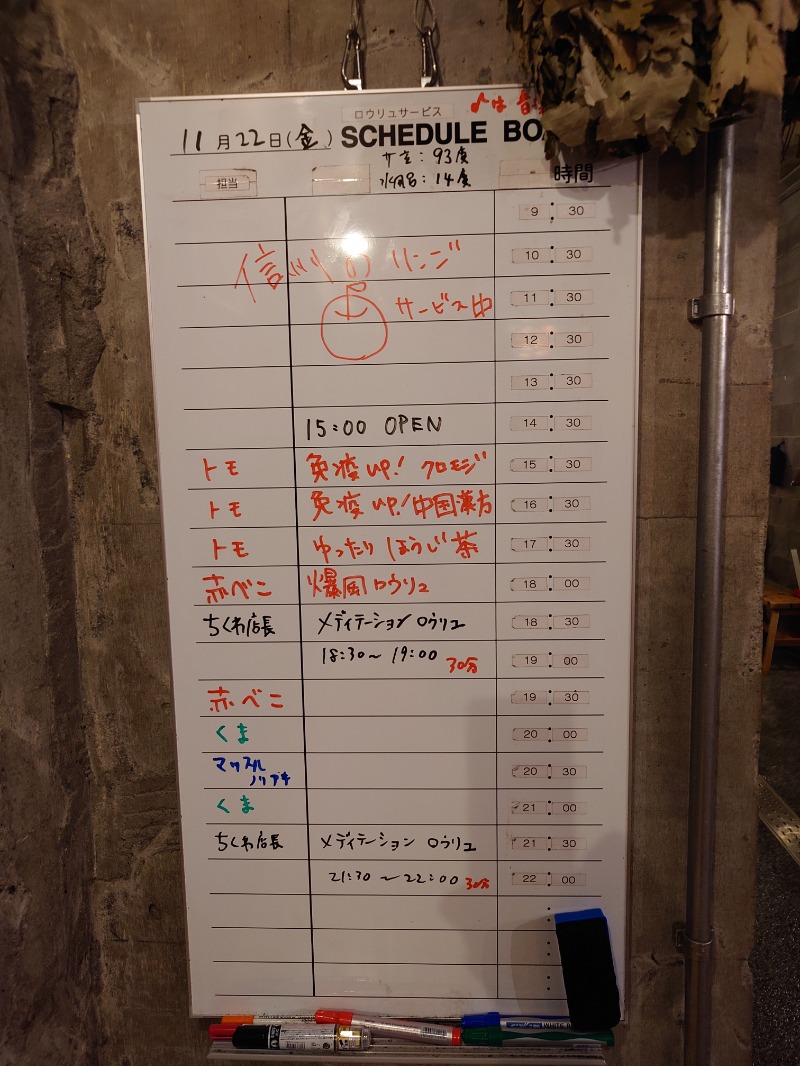 ロウリュサービス
11月22日(金) SCHEDULE BO
♪は
サ室: 93度
水風呂: 14度
担当 時間
9:30
信州のリンゴ 10:30
サービス中 11:30
12:30
13:30
15:00 OPEN 14:30
トモ 免疫up! クロモジ 15:30
トモ 免疫up! 中国漢方 16:30
トモ ゆったりほうじ茶 17:30
赤べこ 爆風ロウリュ 18:00
ちくわ店長 メディテーション ロウリュ 18:30
18:30~19:00 30分 19:00
赤べこ 19:30
くま 20:00
マッスル
ノリアキ 20:30
くま 21:00
ちくわ店長 メディテーション ロウリュ 21:30
21:30~22:00 30分 22:00